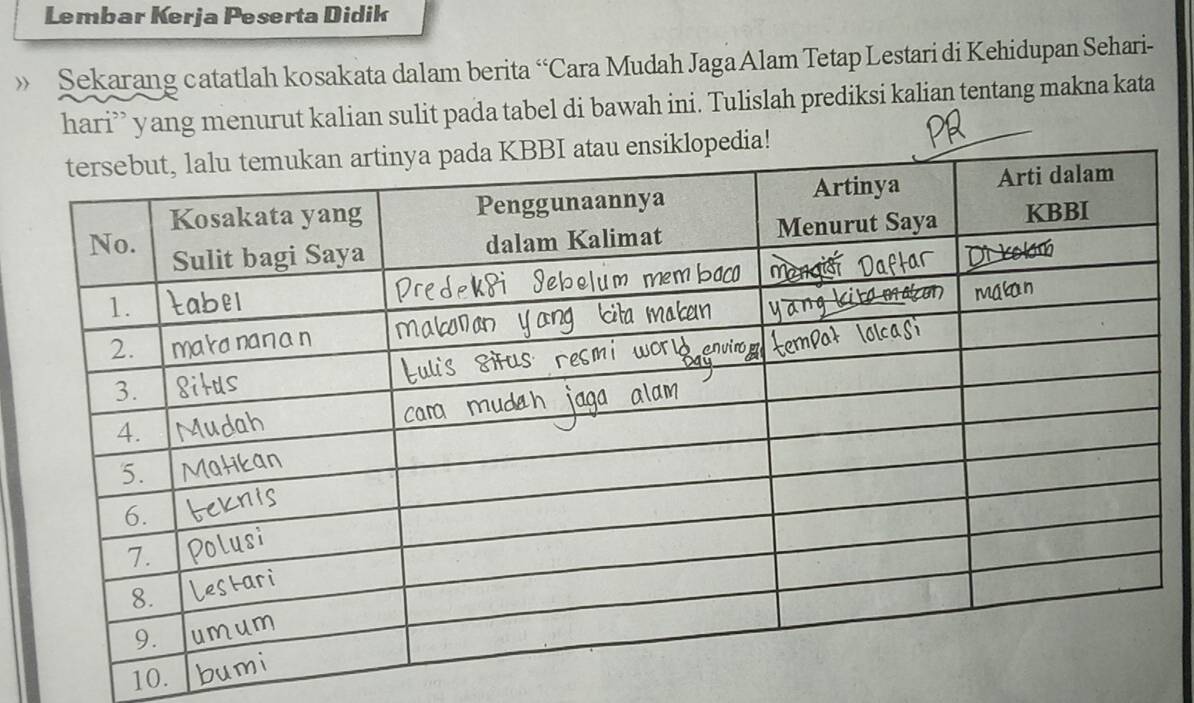 Lembar Kerja Peserta Didik
» Sekarang catatlah kosakata dalam berita “Cara Mudah Jaga Alam Tetap Lestari di Kehidupan Sehari-
hari” yang menurut kalian sulit pada tabel di bawah ini. Tulislah prediksi kalian tentang makna kata
tersebut, lalu temukan artinya pada KBBI atau ensiklopedia!
PR
No. Kosakata yang Sulit bagi Saya Penggunaannya dalam Kalimat Artinya Menurut Saya Arti dalam KBBI
1. tabel Predeksi sebelum membaca mengisi Daftar Di kolom
2. makananan makanan yang kita makan yang kita makan makan
3. situs tulis situs resmi world enviro Day tempat lokasi
4. Mudah cara mudah jaga alam
5. Matikan
6. teknis
7. Polusi
8. Lestari
9. umum
10. bumi